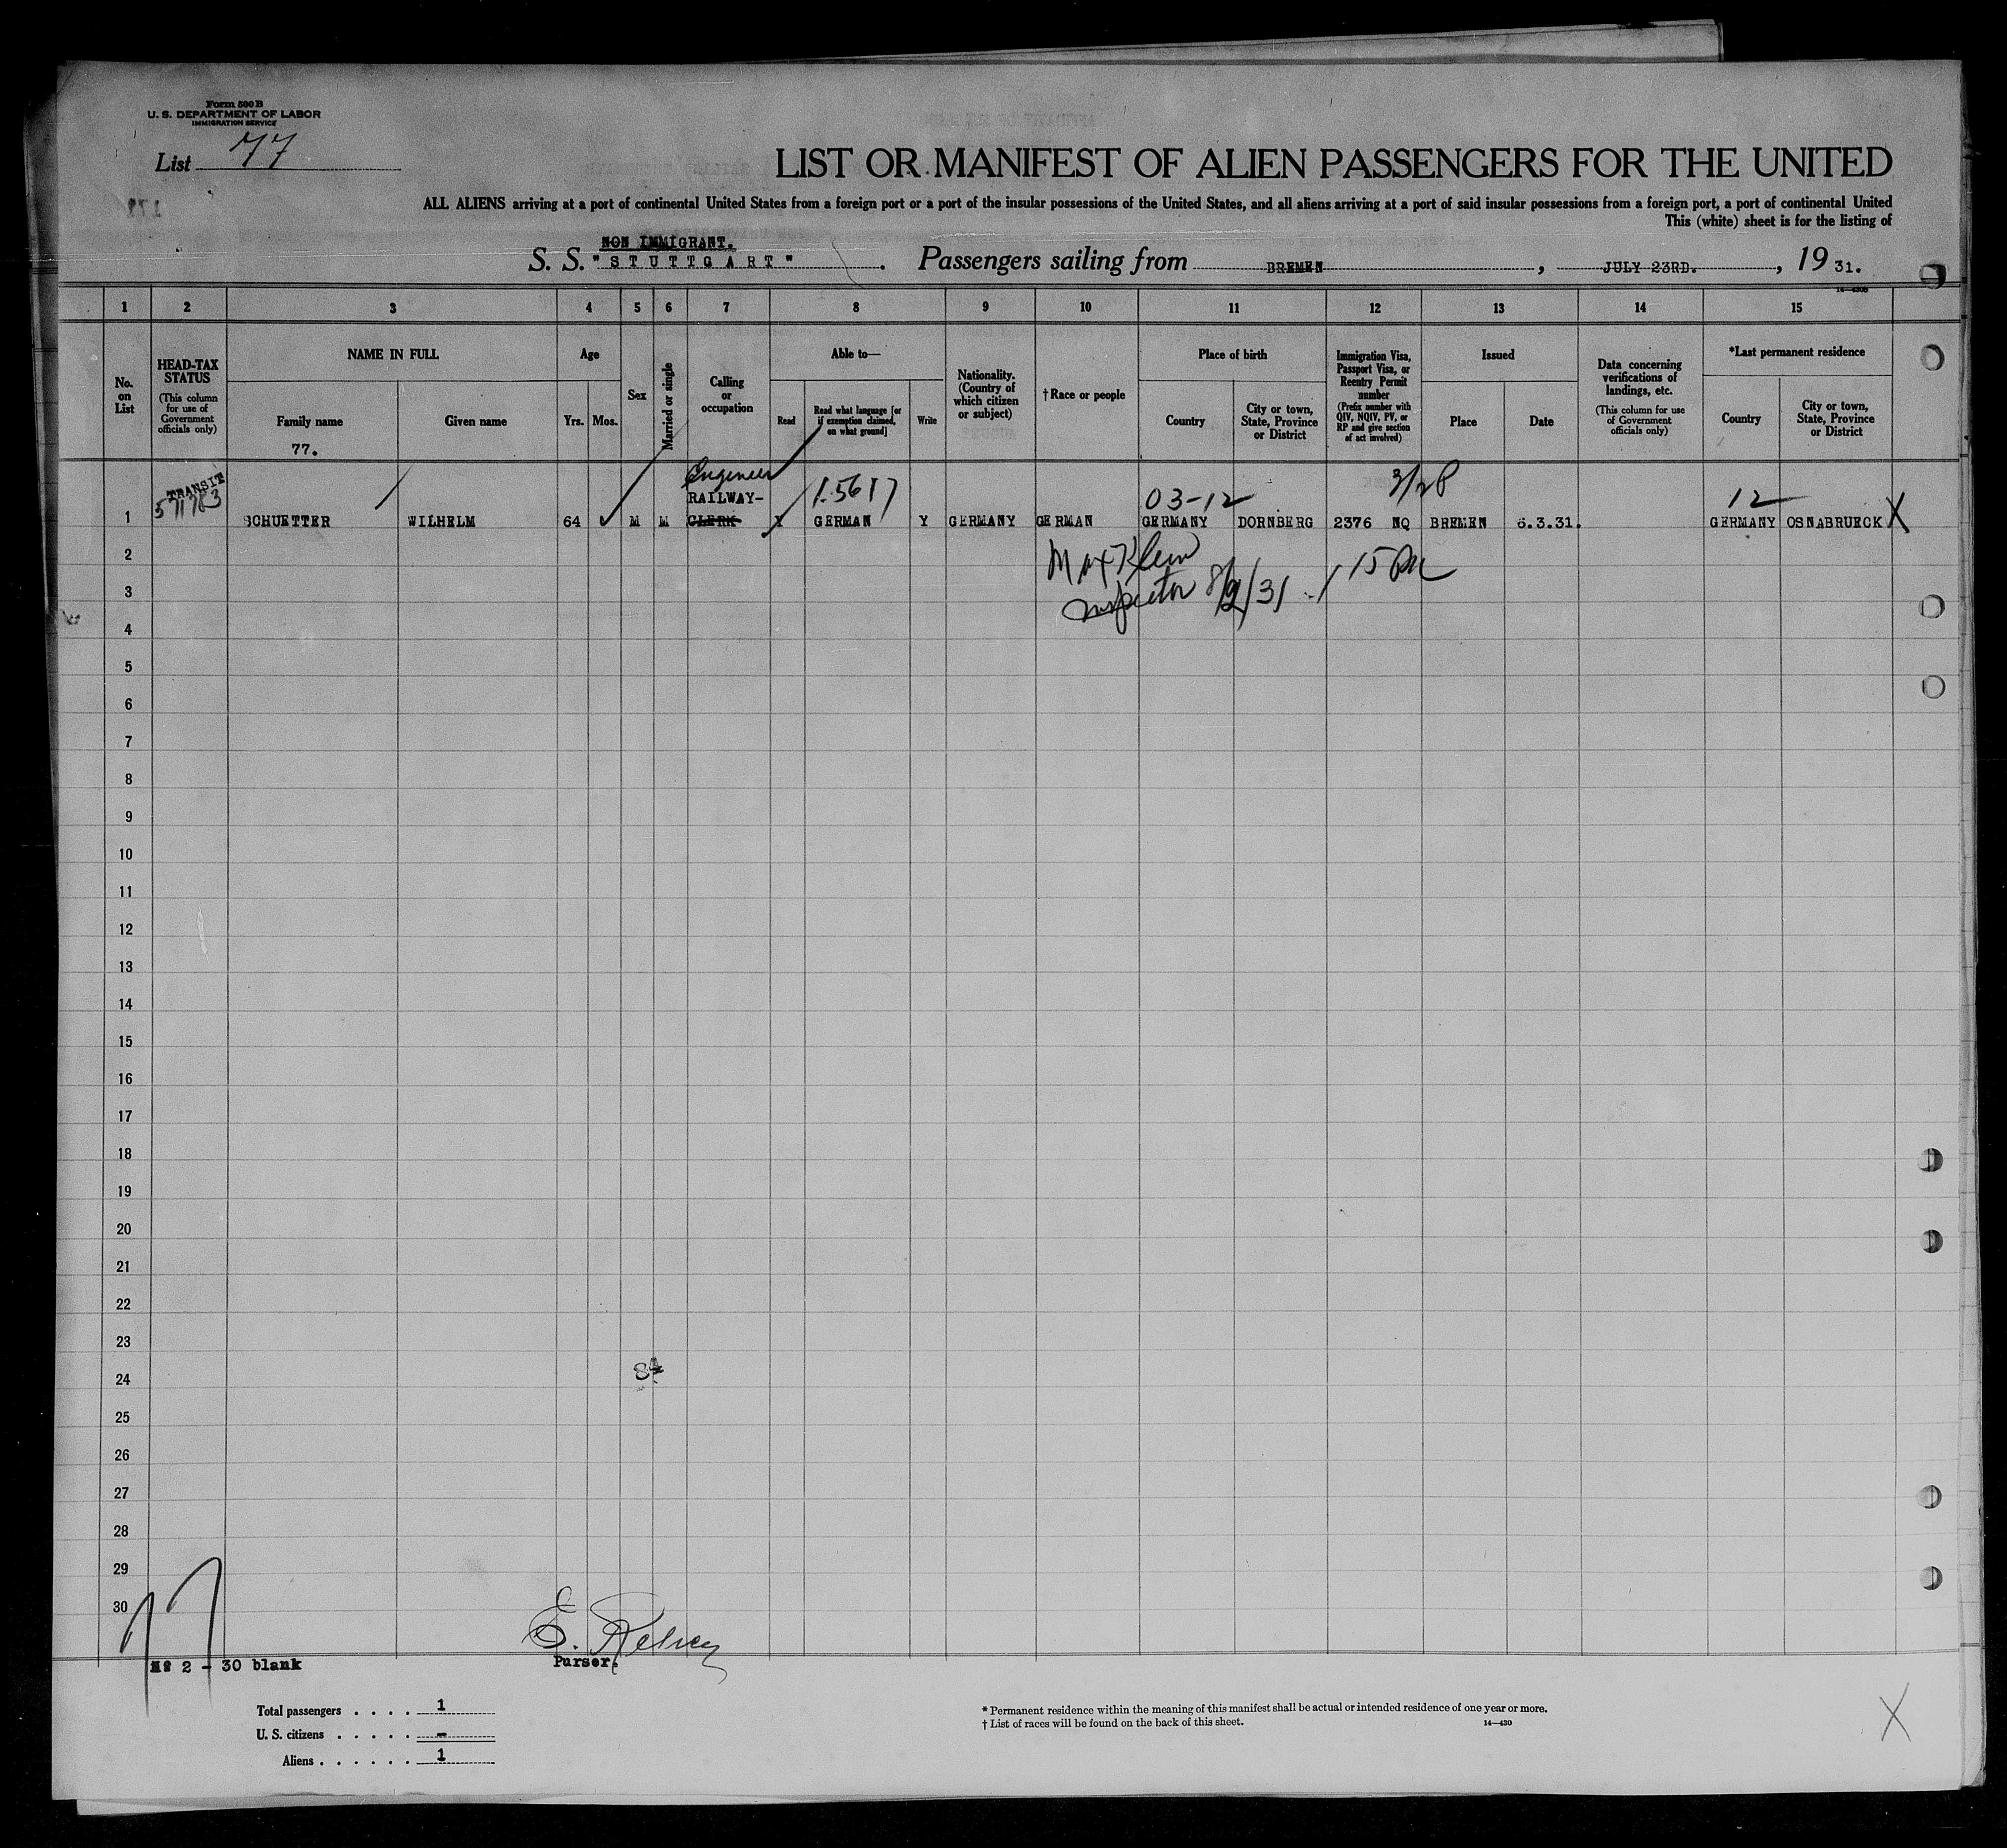 Form 500 B
U. S. DEPARTMENT OF LABOR
IMMIGRATION SERVICE
List 77
LIST OR MANIFEST OF ALIEN PASSENGERS FOR THE UNITED
ALL ALIENS arriving at a port of continental United States from a foreign port or a port of the insular possessions of the United States, and all aliens arriving at a port of said insular possessions from a foreign port, a port of continental United
This (white) sheet is for the listing of
NON IMMIGRANT.
S. S. "STUTTGART". Passengers sailing from BREMEN, JULY 23RD., 19 31.
1 2 3 4 5 6 7 8 9 10 11 12 13 14 15
No. on List
HEAD-TAX STATUS
(This column for use of Government officials only)
NAME IN FULL
Family name
77.
Given name
Age
Yrs. Mos.
Sex
Married or single
Calling or occupation
Able to—
Read
Read what language [or if exemption claimed, on what ground]
Write
Nationality. (Country of which citizen or subject)
†Race or people
Place of birth
Country
City or town, State, Province or District
Immigration Visa, Passport Visa, or Reentry Permit number
(Prefix number with QIV, NQIV, PV, or RP and give section of act involved)
Issued
Place
Date
Data concerning verifications of landings, etc.
(This column for use of Government officials only)
*Last permanent residence
Country
City or town, State, Province or District
TRANSIT Engineer 3/28
571783 RAILWAY- 1.5617 03-12 12
1 SCHUETTER WILHELM 64 M M CLERK Y GERMAN Y GERMANY GERMAN GERMANY DORNBERG 2376 NQ BREMEN 6.3.31. GERMANY OSNABRUECK X
2
Max Klein
3
Inspector 8/2/31
4
5
6
7
8
9
10
11
12
13
14
15
16
17
18
19
20
21
22
23
24
25
26
27
28
29
30
77
E. Kelsey
№ 2 - 30 blank
Purser.
Total passengers . . . . 1
U. S. citizens . . . . . -
Aliens . . . . . . 1
* Permanent residence within the meaning of this manifest shall be actual or intended residence of one year or more.
† List of races will be found on the back of this sheet. 14—430
X